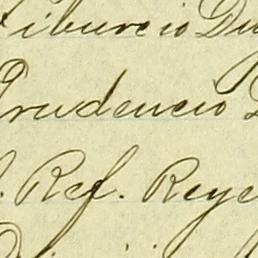 Tiburcio Du
Prudencio
. Ref. Reye